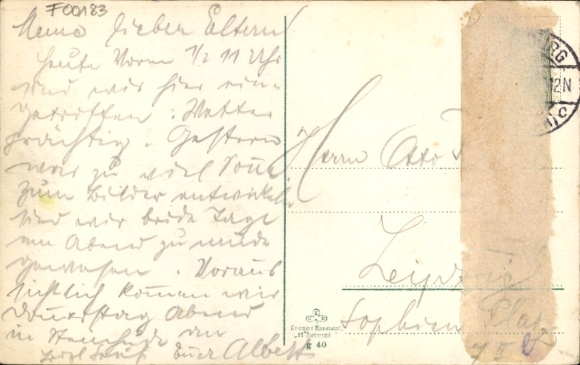 F00183
Meine lieben Eltern!
Heute Vorm ½ 11 Uhr
sind wir hier ein-
getroffen. Wetter
prächtig. Gestern
war zu viel Sonne.
Zum Bilder entwickeln
sind wir beide Tage
am Abend zu müde
gewesen. Voraus
sichtlich kommen wir
Donnerstag Abend
in an
Euer Albert
Herrn Otto
Leipzig
Sophien Platz
RG
12N
C
g 40